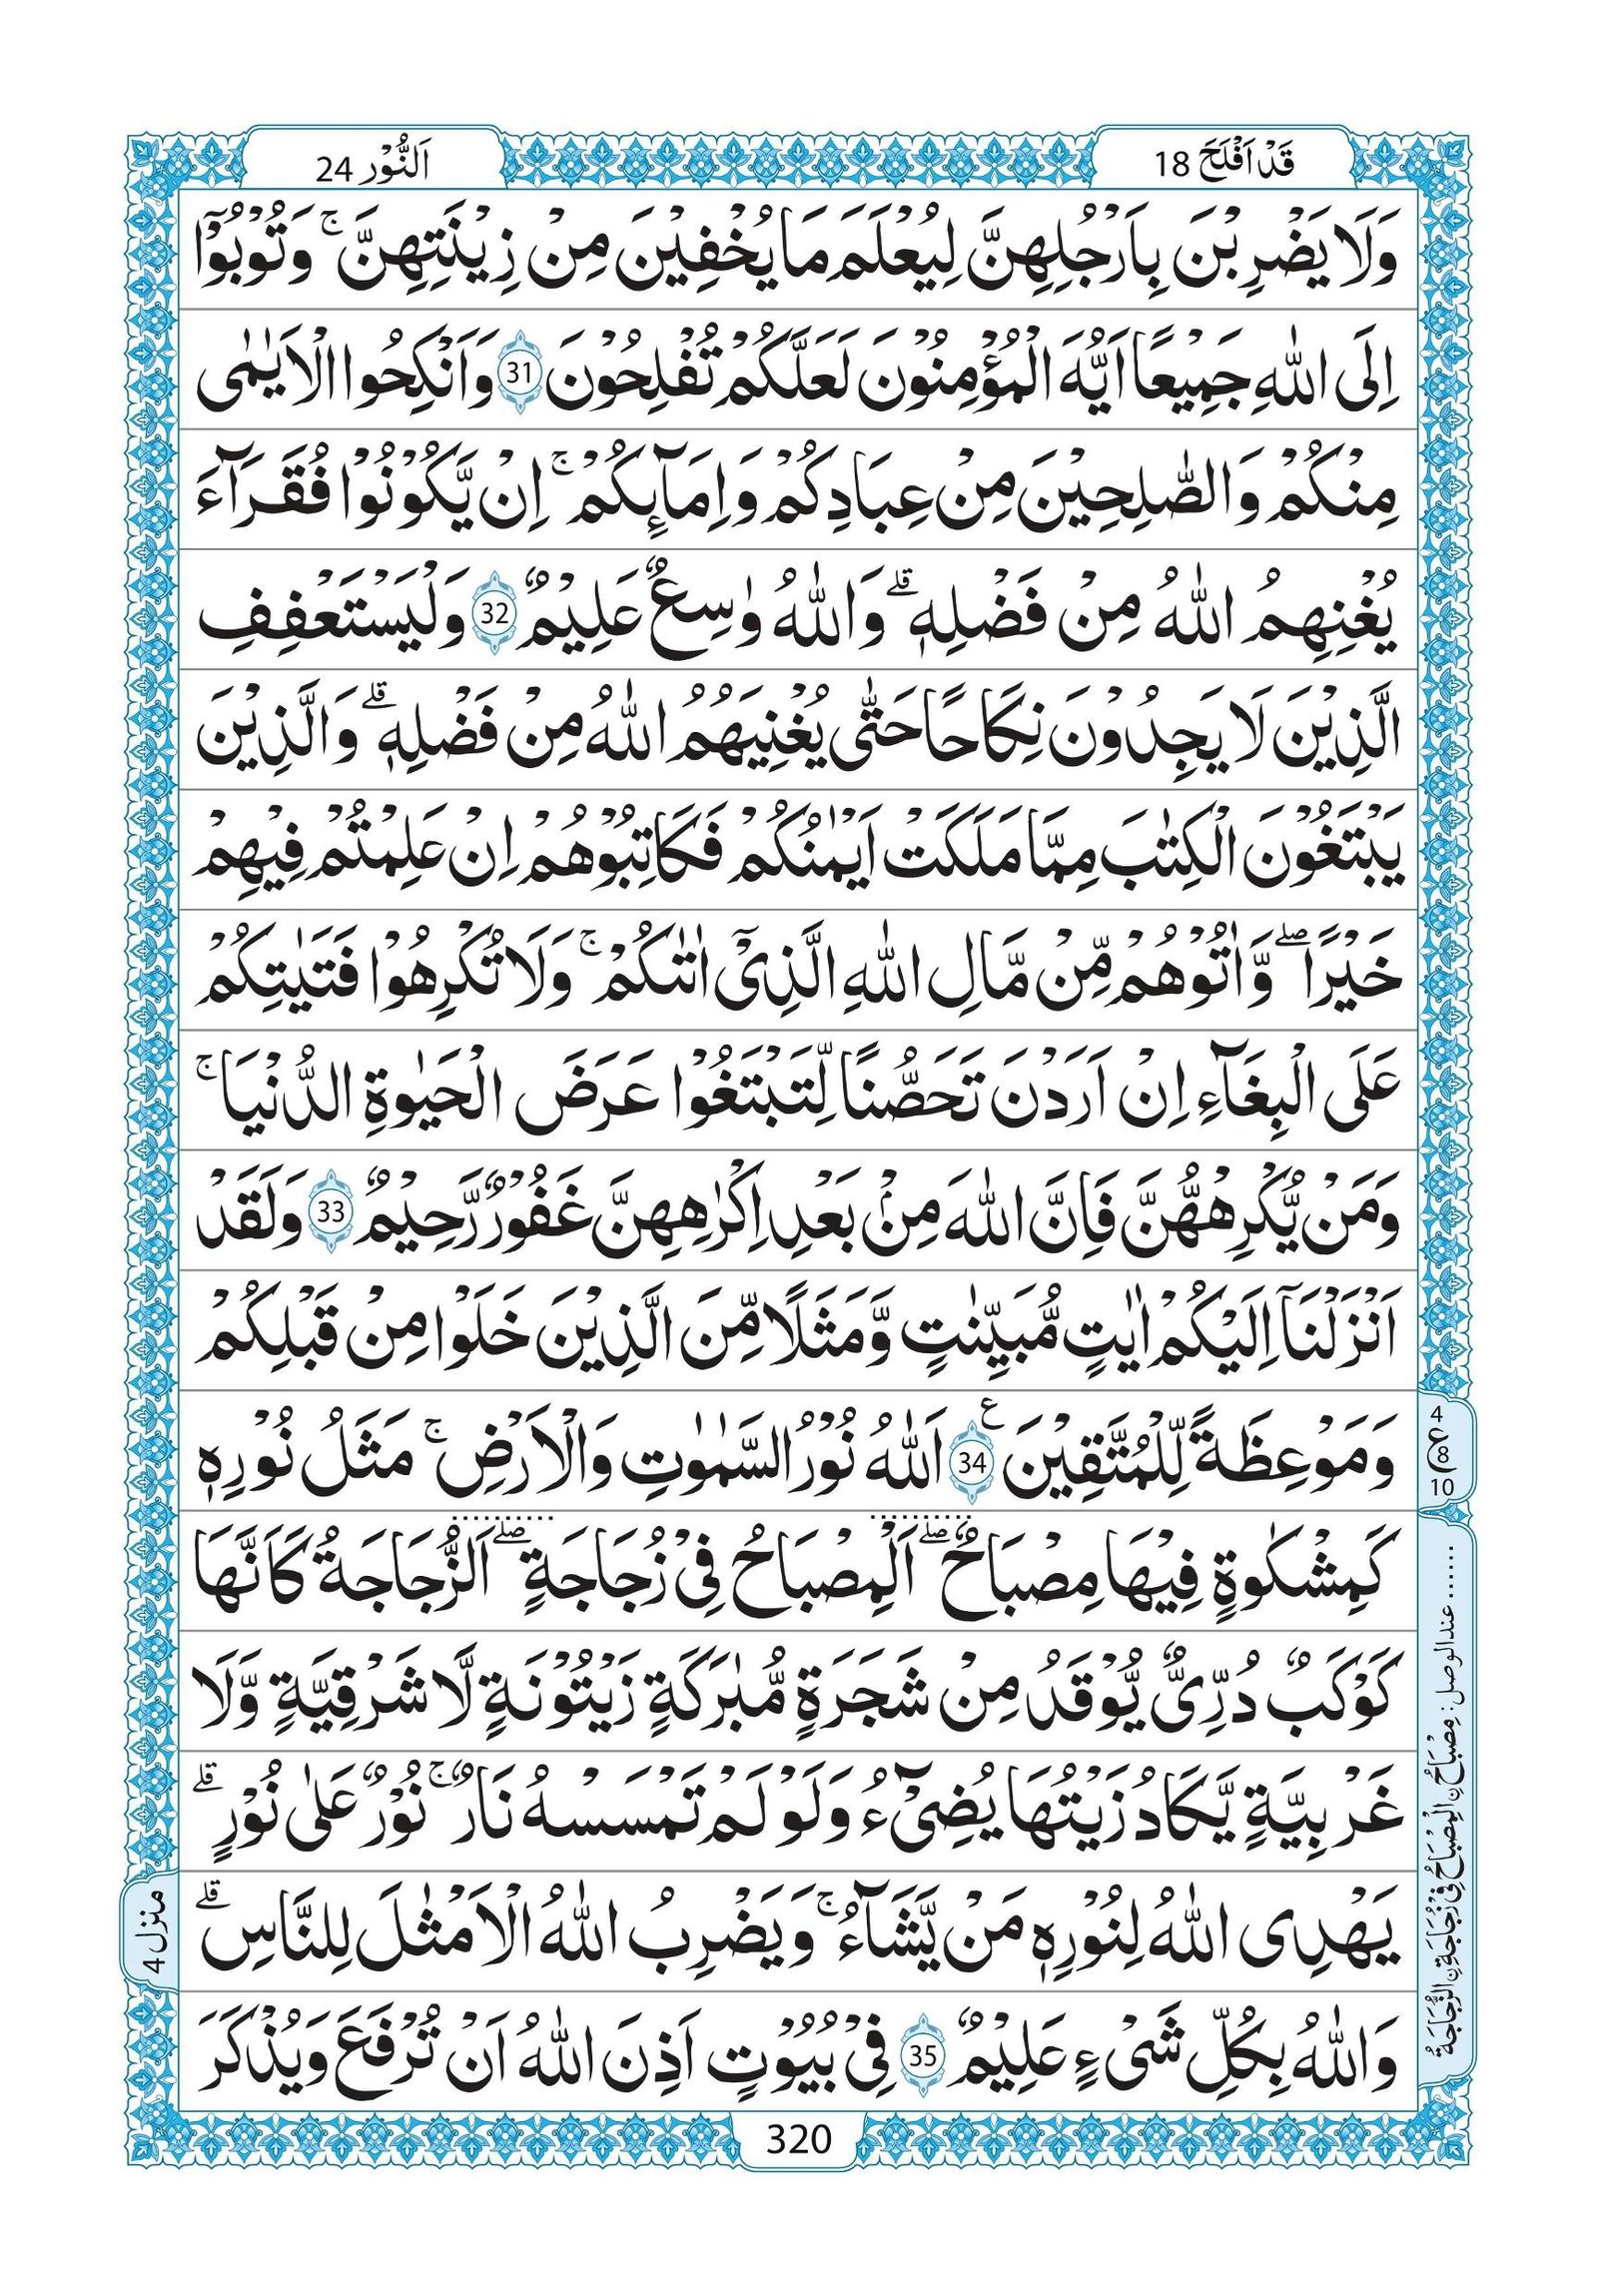 قَدْ اَفْلَحَ 18
اَلنُّوْر 24
وَلَا يَضْرِبْنَ بِاَرْجُلِهِنَّ لِيُعْلَمَ مَا يُخْفِيْنَ مِنْ زِيْنَتِهِنَّ ۚ وَتُوْبُوْٓا
اِلَى اللّٰهِ جَمِيْعًا اَيُّهَ الْمُؤْمِنُوْنَ لَعَلَّكُمْ تُفْلِحُوْنَ 31 وَاَنْكِحُوا الْاَيٰمٰى
مِنْكُمْ وَالصّٰلِحِيْنَ مِنْ عِبَادِكُمْ وَاِمَآىِٕكُمْ ۚ اِنْ يَّكُوْنُوْا فُقَرَآءَ
يُغْنِهِمُ اللّٰهُ مِنْ فَضْلِهٖ ۗ وَاللّٰهُ وٰسِعٌ عَلِيْمٌ 32 وَلْيَسْتَعْفِفِ
الَّذِيْنَ لَا يَجِدُوْنَ نِكَاحًا حَتّٰى يُغْنِيَهُمُ اللّٰهُ مِنْ فَضْلِهٖ ۗ وَالَّذِيْنَ
يَبْتَغُوْنَ الْكِتٰبَ مِمَّا مَلَكَتْ اَيْمٰنُكُمْ فَكَاتِبُوْهُمْ اِنْ عَلِمْتُمْ فِيْهِمْ
خَيْرًا ۖ وَّاٰتُوْهُمْ مِّنْ مَّالِ اللّٰهِ الَّذِيْٓ اٰتٰىكُمْ ۚ وَلَا تُكْرِهُوْا فَتَيٰتِكُمْ
عَلَى الْبِغَآءِ اِنْ اَرَدْنَ تَحَصُّنًا لِّتَبْتَغُوْا عَرَضَ الْحَيٰوةِ الدُّنْيَا ۚ
وَمَنْ يُّكْرِهْهُّنَّ فَاِنَّ اللّٰهَ مِنْۢ بَعْدِ اِكْرٰهِهِنَّ غَفُوْرٌ رَّحِيْمٌ 33 وَلَقَدْ
اَنْزَلْنَآ اِلَيْكُمْ اٰيٰتٍ مُّبَيِّنٰتٍ وَّمَثَلًا مِّنَ الَّذِيْنَ خَلَوْا مِنْ قَبْلِكُمْ
وَمَوْعِظَةً لِّلْمُتَّقِيْنَ ع 34 اَللّٰهُ نُوْرُ السَّمٰوٰتِ وَالْاَرْضِ ۚ مَثَلُ نُوْرِهٖ
كَمِشْكٰوةٍ فِيْهَا مِصْبَاحٌ ۖ اَلْمِصْبَاحُ فِيْ زُجَاجَةٍ ۖ اَلزُّجَاجَةُ كَاَنَّهَا
كَوْكَبٌ دُرِّيٌّ يُّوْقَدُ مِنْ شَجَرَةٍ مُّبٰرَكَةٍ زَيْتُوْنَةٍ لَّا شَرْقِيَّةٍ وَّلَا
غَرْبِيَّةٍ يَّكَادُ زَيْتُهَا يُضِيْٓءُ وَلَوْ لَمْ تَمْسَسْهُ نَارٌ ۚ نُوْرٌ عَلٰى نُوْرٍ ۗ
يَهْدِى اللّٰهُ لِنُوْرِهٖ مَنْ يَّشَآءُ ۚ وَيَضْرِبُ اللّٰهُ الْاَمْثٰلَ لِلنَّاسِ ۗ
وَاللّٰهُ بِكُلِّ شَيْءٍ عَلِيْمٌ 35 فِيْ بُيُوْتٍ اَذِنَ اللّٰهُ اَنْ تُرْفَعَ وَيُذْكَرَ
4
ع 8
10
...... عند الوصل : مِصْبَاحُ نِ الْمِصْبَاحُ فِيْ زُجَاجَةِ نِ الزُّجَاجَةُ
منزل 4
320